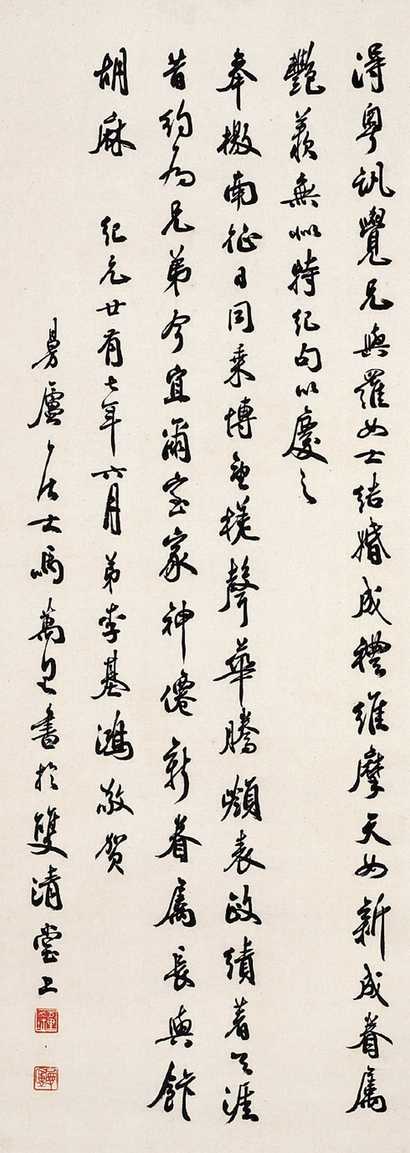 得粵訊覺兄與羅女士結婚成禮維摩天女新成眷屬
艷羨無似特紀句以慶之
奉檄南征日同乘博望槎聲華騰嶺表政績著天涯
昔約為兄弟今宜爾室家神僊新眷屬長與飯
胡麻 紀元廿有七年六月弟李基鴻敬賀
曼廬居士馬萬里書於雙清堂上